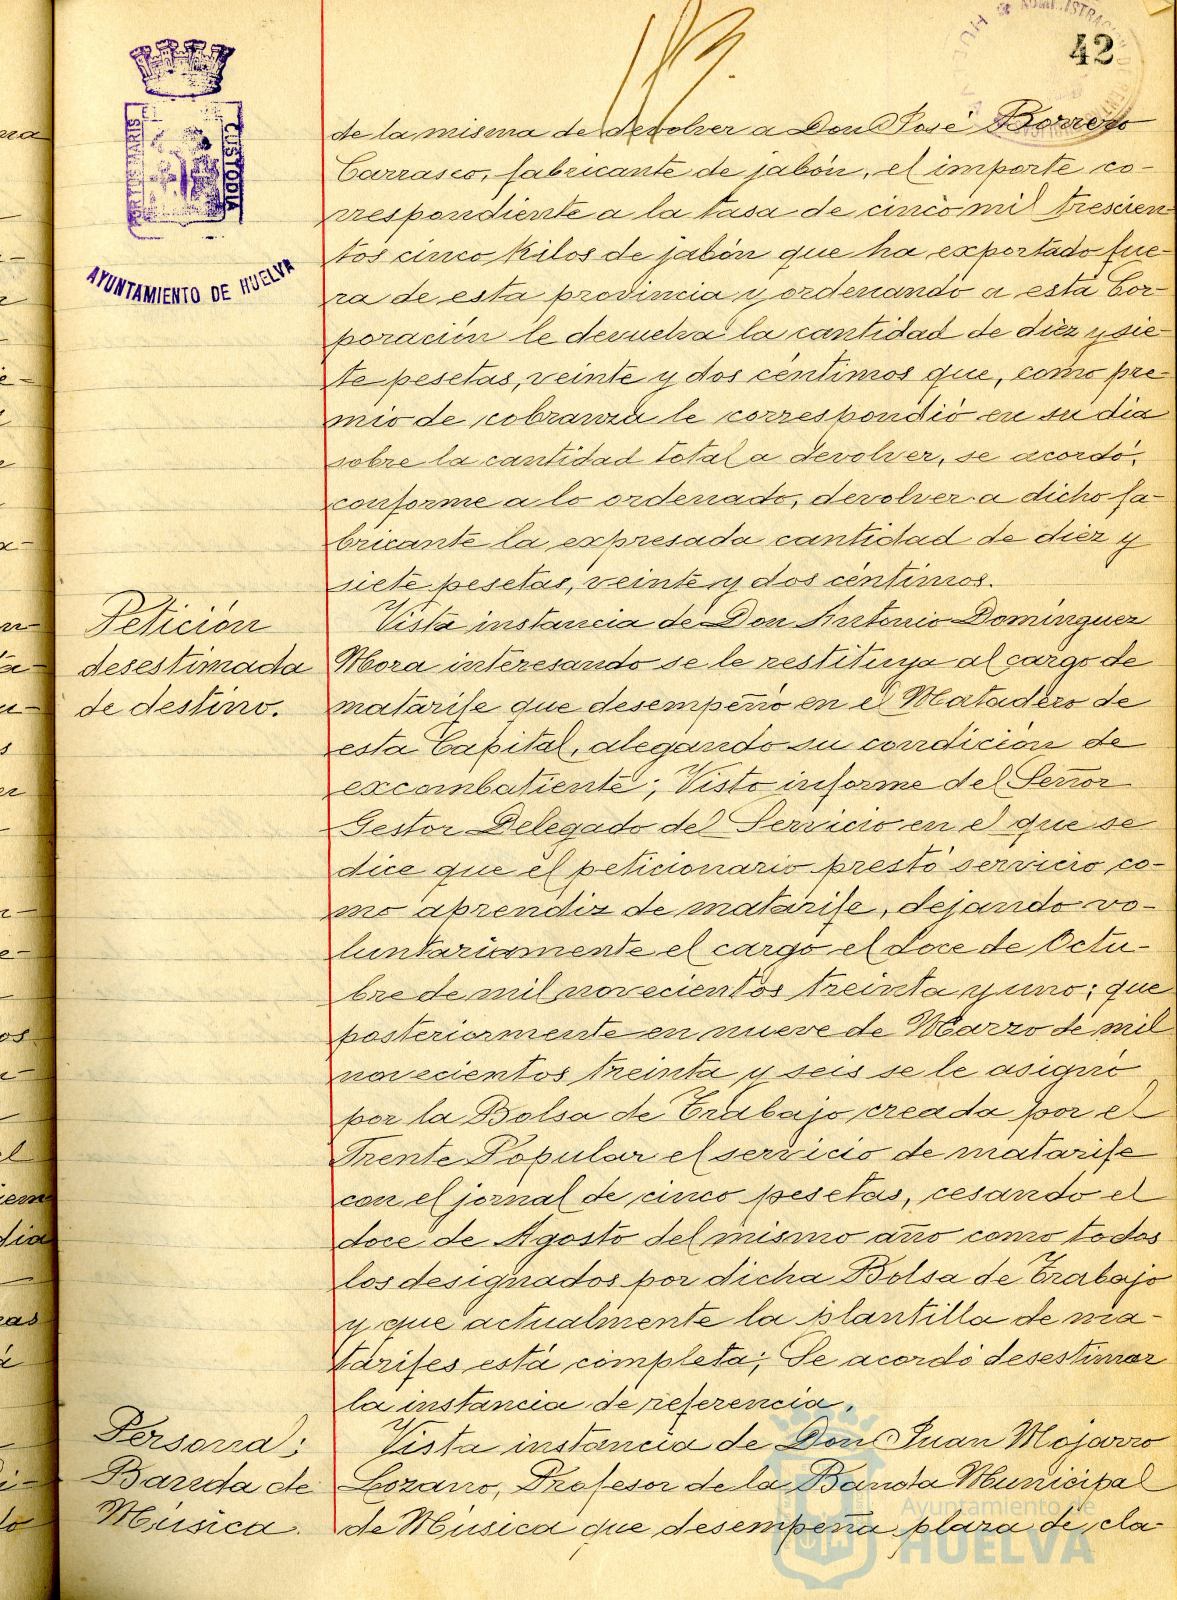 42
113.
PORTUS MARIS ET
CUSTODIA
AYUNTAMIENTO DE HUELVA
de la misma de devolver a Don José Borrero
Carrasco, fabricante de jabón, el importe co-
rrespondiente a la tasa de cinco mil trescien-
tos cinco kilos de jabón que ha exportado fue-
ra de esta provincia y ordenando a esta Cor-
poración le devuelva la cantidad de diez y sie-
te pesetas, veinte y dos céntimos que, como pre-
mio de cobranza le correspondió en su dia
sobre la cantidad total a devolver, se acordó,
conforme a lo ordenado, devolver a dicho fa-
bricante la expresada cantidad de diez y
siete pesetas, veinte y dos céntimos.
Petición
desestimada
de destino.
Vista instancia de Don Antonio Domínguez
Mora interesando se le restituya al cargo de
matarife que desempeñó en el Matadero de
esta Capital, alegando su condición de
excombatiente; Visto informe del Señor
Gestor Delegado del Servicio en el que se
dice que el peticionario prestó servicio co-
mo aprendiz de matarife, dejando vo-
luntariamente el cargo el doce de Octu-
bre de mil novecientos treinta y uno; que
posteriormente en nueve de Marzo de mil
novecientos treinta y seis se le asignó
por la Bolsa de Trabajo creada por el
Frente Popular el servicio de matarife
con el jornal de cinco pesetas, cesando el
doce de Agosto del mismo año como todos
los designados por dicha Bolsa de Trabajo
y que actualmente la plantilla de ma-
tarifes está completa; Se acordó desestimar
la instancia de referencia.
Personal;
Banda de
Música.
Vista instancia de Don Juan Mojarro
Lozano, Profesor de la Banda Municipal
de Música que desempeña plaza de cla-
Ayuntamiento de
HUELVA